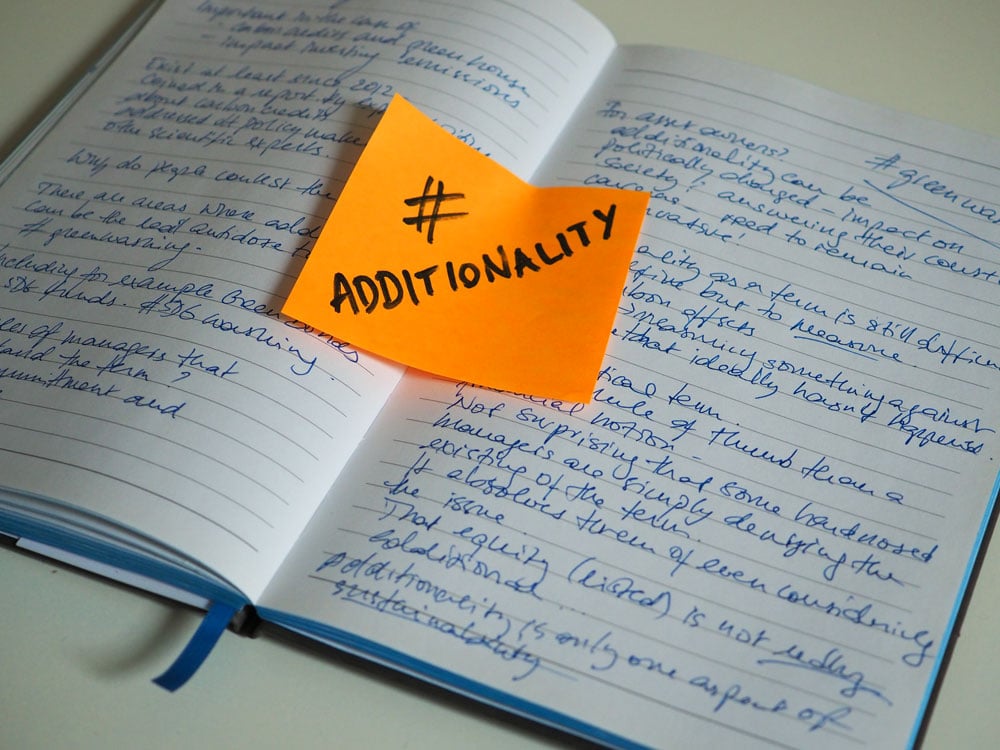 important in the case of
- carbon credits and green house
- impact investing emissions
Exist at least since 2012
coined in a report by
about carbon credits
addressed at policy make
& the scientific experts.
Why do people contest the
There are areas where add
can be the best antidote to
# greenwashing.
including for example Green bonds
SDG funds. #SDG washing.
of managers that
the term?
commitment and
#
ADDITIONALITY
For asset owners?
additionality can be
politically charged - impact on
society? answering their const
- need to remain
# greenwa
ality as a term is still difficu
but to measure
offsets
measuring something against
that ideally hasn't happens.
tical term
rule of thumb than a
financial notion -
Not surprising that some hardnosed
managers are simply denying the
existing of the term.
It absolves them of even considering
the issue
That equity (listed) is not really
additional ...
Additionality is only one aspect of
sustainability